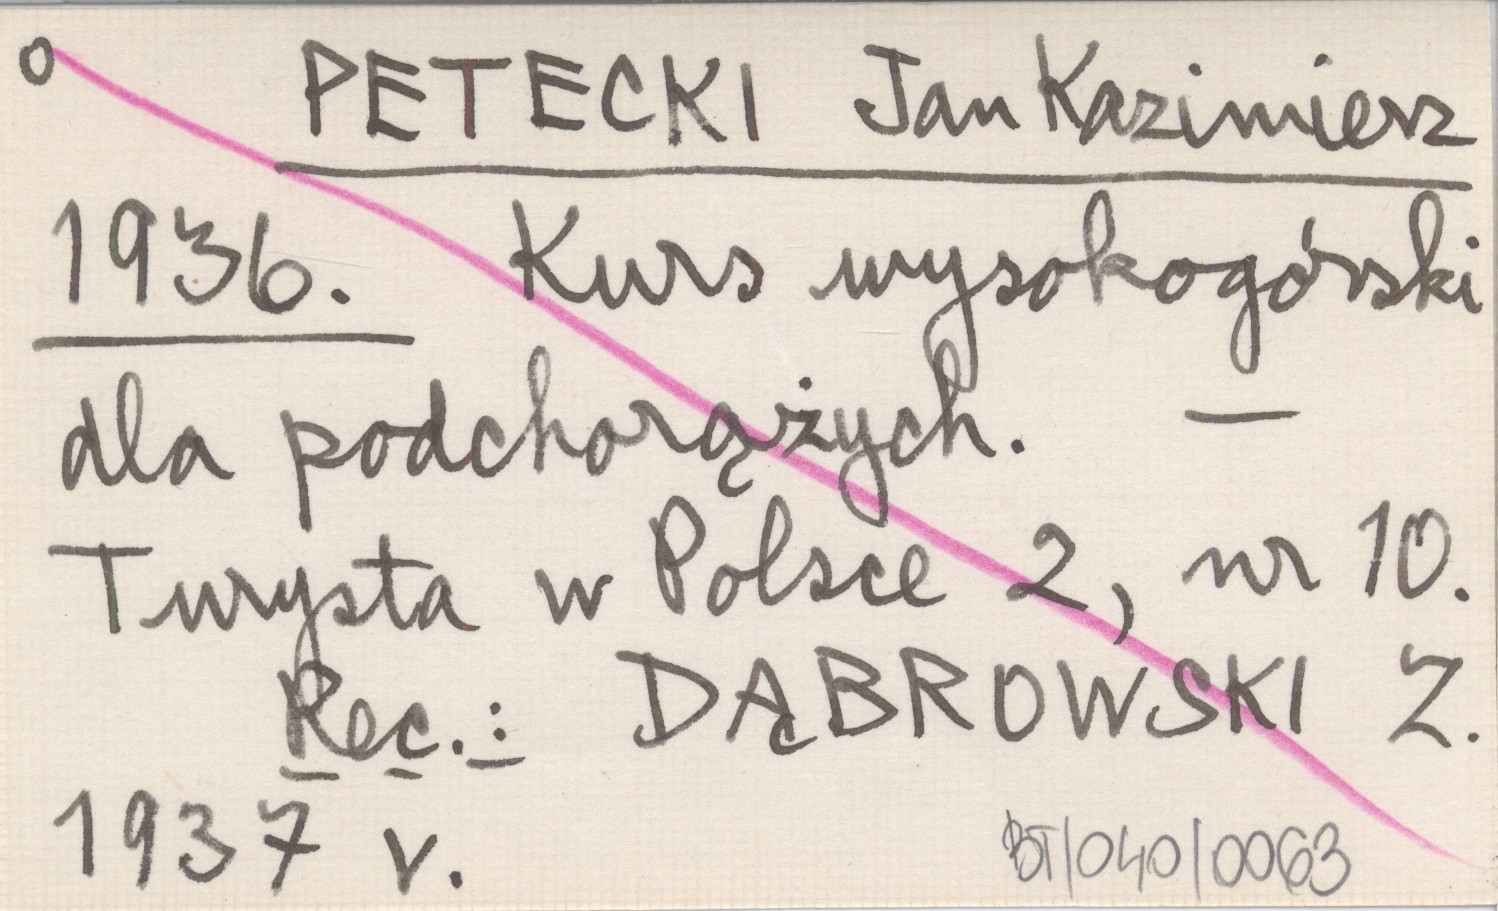 o PETECKI Jan Kazimierz
1936. Kurs wysokogórski
dla podchorążych. —
Turysta w Polsce 2, nr 10.
Rec.: DĄBROWSKI Z.
1937 v.
BT/040/0063